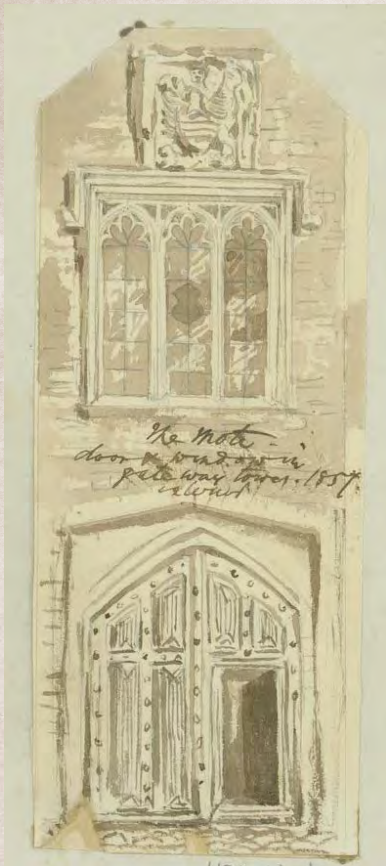 The Mote
door & window in
gateway tower. 1857.